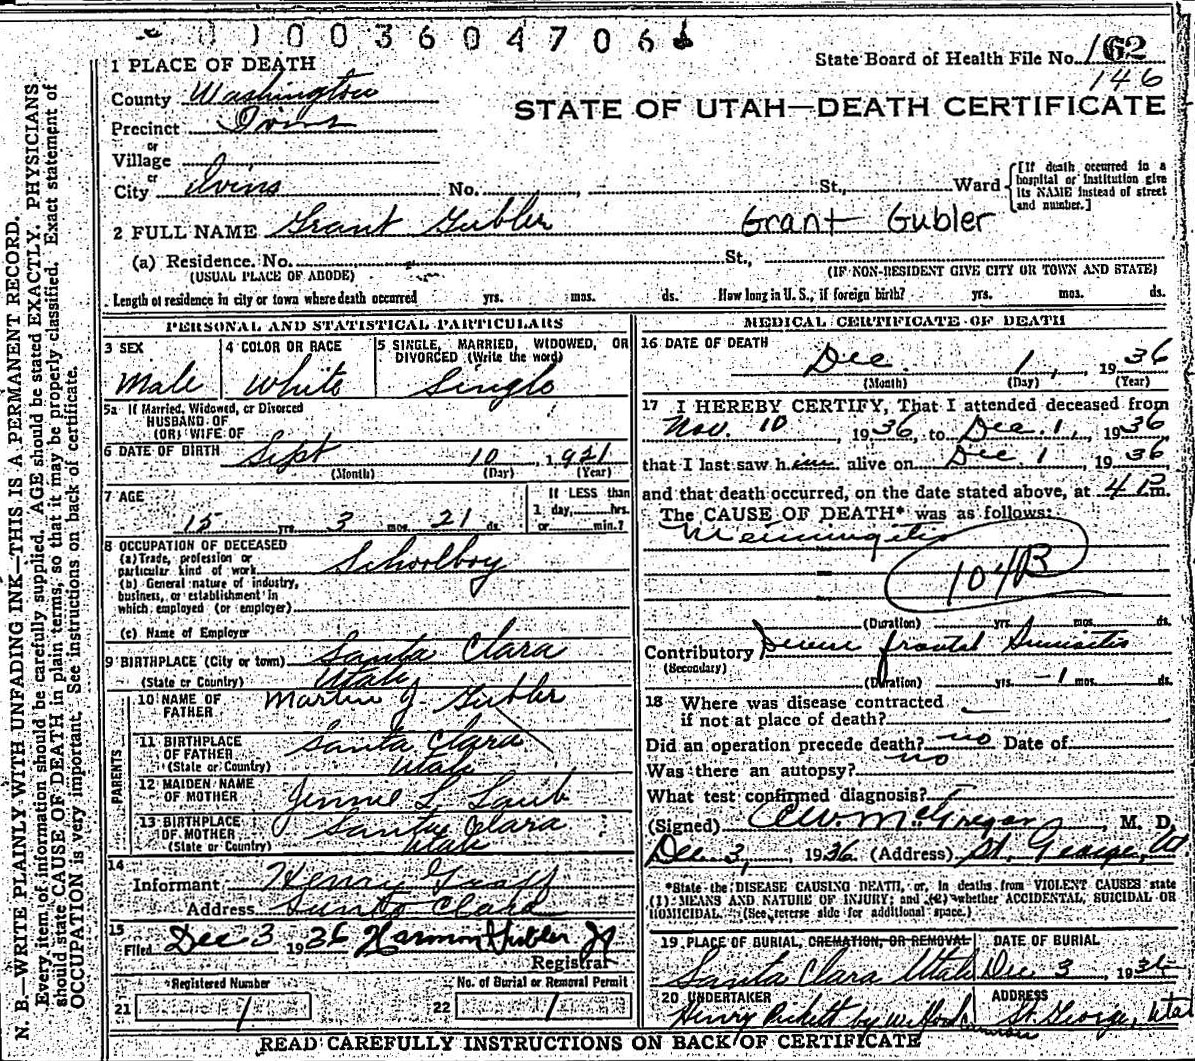 0 1 0 0 3 6 0 4 7 0 6
State Board of Health File No. 162
146
STATE OF UTAH—DEATH CERTIFICATE
1 PLACE OF DEATH
County Washington
Precinct Ivins
or
Village
or
City Ivins No. , St., Ward
[If death occurred in a hospital or institution give its NAME instead of street and number.]
2 FULL NAME Grant Gubler Grant Gubler
(a) Residence. No. St.,
(USUAL PLACE OF ABODE) (IF NON-RESIDENT GIVE CITY OR TOWN AND STATE)
Length of residence in city or town where death occurred yrs. mos. ds. How long in U. S., if foreign birth? yrs. mos. ds.
PERSONAL AND STATISTICAL PARTICULARS
3 SEX
Male
4 COLOR OR RACE
White
5 SINGLE, MARRIED, WIDOWED, OR
DIVORCED (Write the word)
Single
5a If Married, Widowed, or Divorced
HUSBAND OF
(OR) WIFE OF
6 DATE OF BIRTH Sept 10, 1921
(Month) (Day) (Year)
7 AGE
15 yrs. 3 mos. 21 ds.
If LESS than
1 day, hrs.
or min.?
8 OCCUPATION OF DECEASED
(a) Trade, profession or
particular kind of work Schoolboy
(b) General nature of industry,
business, or establishment in
which employed (or employer)
(c) Name of Employer
9 BIRTHPLACE (City or town) Santa Clara
(State or Country) Utah
PARENTS
10 NAME OF
FATHER Martin J. Gubler
11 BIRTHPLACE
OF FATHER Santa Clara
(State or Country) Utah
12 MAIDEN NAME
OF MOTHER Jennie L. Laub
13 BIRTHPLACE
OF MOTHER Santa Clara
(State or Country) Utah
14
Informant Henry Graff
Address Santa Clara
15
Filed Dec 3 1936 Harmon Gubler Jr
Registrar
Registered Number
21 1
No. of Burial or Removal Permit
22 1
MEDICAL CERTIFICATE OF DEATH
16 DATE OF DEATH
Dec. 1, 1936
(Month) (Day) (Year)
17 I HEREBY CERTIFY, That I attended deceased from
Nov. 10, 1936, to Dec. 1, 1936
that I last saw him alive on Dec 1 1936
and that death occurred, on the date stated above, at 4 P.m.
The CAUSE OF DEATH* was as follows:
Meningitis
104B
(Duration) yrs. mos. ds.
Contributory Severe frontal Sinusitis
(Secondary)
(Duration) yrs. 1 mos. ds.
18 Where was disease contracted
if not at place of death?
Did an operation precede death? no Date of
Was there an autopsy? no
What test confirmed diagnosis?
(Signed) McGregor, M. D.
Dec. 3, 1936 (Address) St. George, Ut
*State the DISEASE CAUSING DEATH, or, in deaths from VIOLENT CAUSES state
(1) MEANS AND NATURE OF INJURY; and (2) whether ACCIDENTAL, SUICIDAL OR
HOMICIDAL. (See reverse side for additional space.)
19 PLACE OF BURIAL, CREMATION, OR REMOVAL
Santa Clara Utah
DATE OF BURIAL
Dec 3, 1936
20 UNDERTAKER
Henry Pickett by
ADDRESS
St. George, Utah
READ CAREFULLY INSTRUCTIONS ON BACK OF CERTIFICATE
N. B.—WRITE PLAINLY WITH UNFADING INK—THIS IS A PERMANENT RECORD.
Every item of information should be carefully supplied. AGE should be stated EXACTLY. PHYSICIANS
should state CAUSE OF DEATH in plain terms, so that it may be properly classified. Exact statement of
OCCUPATION is very important. See instructions on back of certificate.